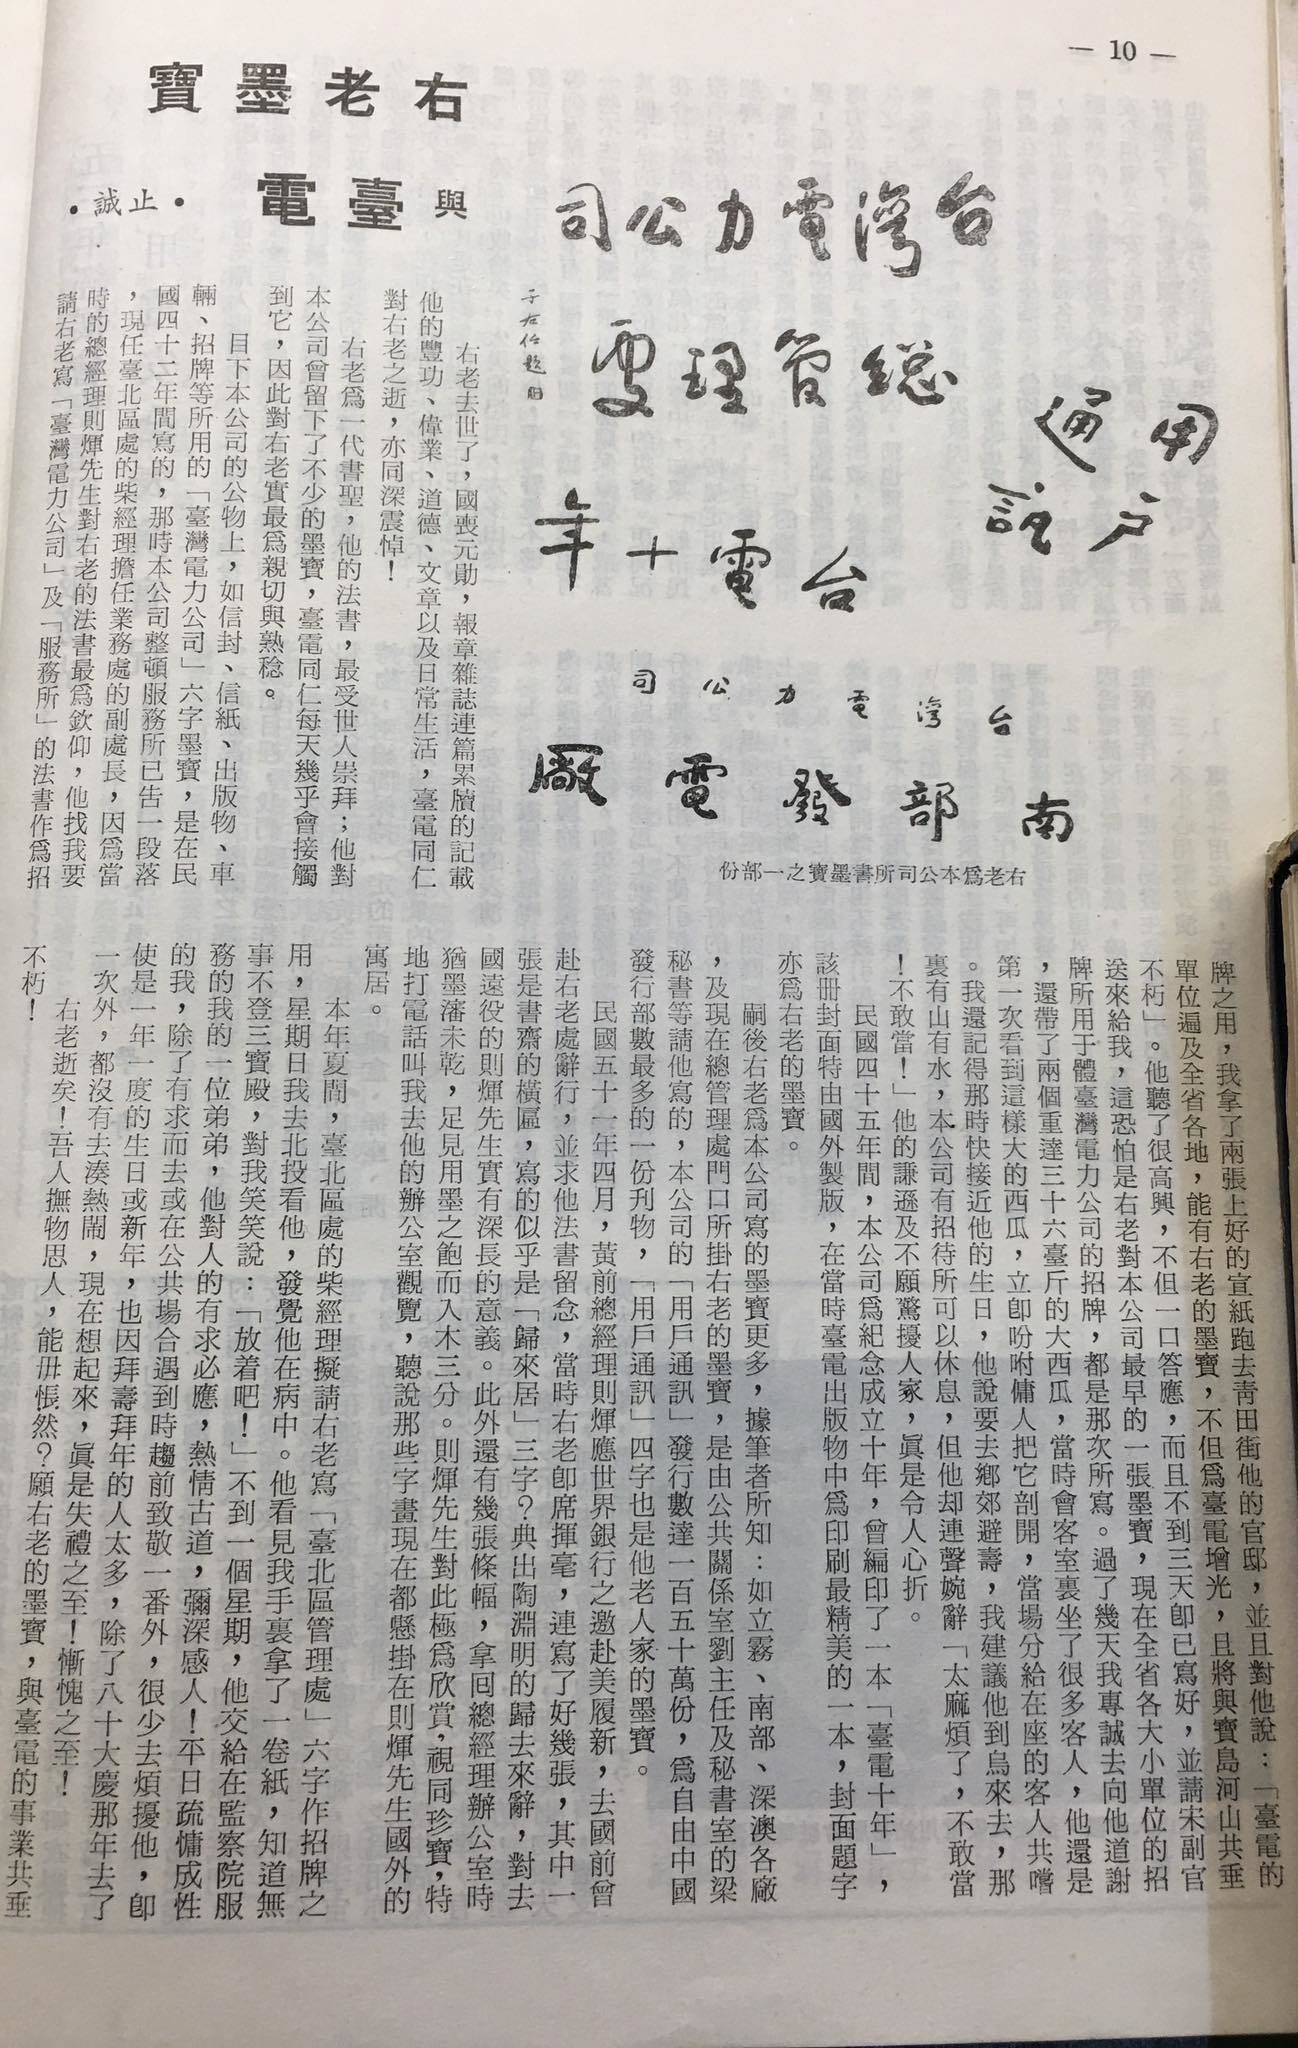 — 10 —
右老墨寶
與臺電
•止誠•
台灣電力公司
總管理處
于右任題
用戶
通訊
台電十年
台灣電力公司
南部發電廠
右老爲本公司所書墨寶之一部份
右老去世了，國喪元勛，報章雜誌連篇累牘的記載
他的豐功、偉業、道德、文章以及日常生活，臺電同仁
對右老之逝，亦同深震悼！
右老爲一代書聖，他的法書，最受世人崇拜；他對
本公司曾留下了不少的墨寶，臺電同仁每天幾乎會接觸
到它，因此對右老實最爲親切與熟稔。
目下本公司的公物上，如信封、信紙、出版物、車
輛、招牌等所用的「臺灣電力公司」六字墨寶，是在民
國四十二年間寫的，那時本公司整頓服務所已告一段落
，現任臺北區處的柴經理擔任業務處的副處長，因爲當
時的總經理則煇先生對右老的法書最爲欽仰，他找我要
請右老寫「臺灣電力公司」及「服務所」的法書作爲招
牌之用，我拿了兩張上好的宣紙跑去靑田街他的官邸，並且對他說：「臺電的
單位遍及全省各地，能有右老的墨寶，不但爲臺電增光，且將與寶島河山共垂
不朽」。他聽了很高興，不但一口答應，而且不到三天卽已寫好，並請宋副官
送來給我，這恐怕是右老對本公司最早的一張墨寶，現在全省各大小單位的招
牌所用于體臺灣電力公司的招牌，都是那次所寫。過了幾天我專誠去向他道謝
，還帶了兩個重達三十六臺斤的大西瓜，當時會客室裏坐了很多客人，他還是
第一次看到這樣大的西瓜，立卽吩咐傭人把它剖開，當場分給在座的客人共嚐
。我還記得那時快接近他的生日，他說要去鄉郊避壽，我建議他到烏來去，那
裏有山有水，本公司有招待所可以休息，但他却連聲婉辭「太麻煩了，不敢當
！不敢當！」他的謙遜及不願驚擾人家，眞是令人心折。
民國四十五年間，本公司爲紀念成立十年，曾編印了一本「臺電十年」，
該册封面特由國外製版，在當時臺電出版物中爲印刷最精美的一本，封面題字
亦爲右老的墨寶。
嗣後右老爲本公司寫的墨寶更多，據筆者所知：如立霧、南部、深澳各廠
，及現在總管理處門口所掛右老的墨寶，是由公共關係室劉主任及秘書室的梁
秘書等請他寫的，本公司的「用戶通訊」發行數達一百五十萬份，爲自由中國
發行部數最多的一份刊物，「用戶通訊」四字也是他老人家的墨寶。
民國五十一年四月，黃前總經理則煇應世界銀行之邀赴美履新，去國前曾
赴右老處辭行，並求他法書留念，當時右老卽席揮毫，連寫了好幾張，其中一
張是書齋的橫匾，寫的似乎是「歸來居」三字？典出陶淵明的歸去來辭，對去
國遠役的則煇先生實有深長的意義。此外還有幾張條幅，拿回總經理辦公室時
猶墨瀋未乾，足見用墨之飽而入木三分。則煇先生對此極爲欣賞，視同珍寶，特
地打電話叫我去他的辦公室觀覽，聽說那些字畫現在都懸掛在則煇先生國外的
寓居。
本年夏間，臺北區處的柴經理擬請右老寫「臺北區管理處」六字作招牌之
用，星期日我去北投看他，發覺他在病中。他看見我手裏拿了一卷紙，知道無
事不登三寶殿，對我笑笑說：「放着吧！」不到一個星期，他交給在監察院服
務的我的一位弟弟，他對人的有求必應，熱情古道，彌深感人！平日疏慵成性
的我，除了有求而去或在公共場合遇到時趨前致敬一番外，很少去煩擾他，卽
使是一年一度的生日或新年，也因拜壽拜年的人太多，除了八十大慶那年去了
一次外，都沒有去湊熱鬧，現在想起來，眞是失禮之至！慚愧之至！
右老逝矣！吾人撫物思人，能毋悵然？願右老的墨寶，與臺電的事業共垂
不朽！